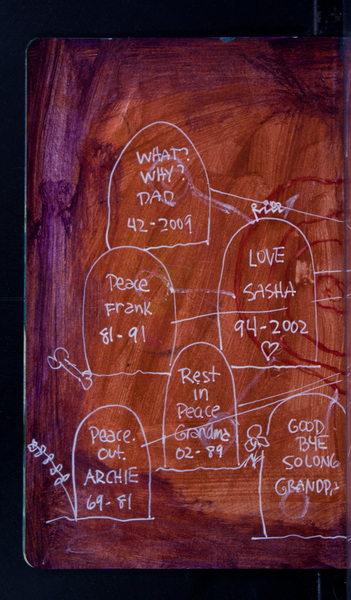 WHAT?
WHY?
DAD
42-2009
LOVE
SASHA
94-2002
Peace
Frank
81-91
Rest
in
Peace
Grandma
02-89
Peace.
Out.
ARCHIE
69-81
GOOD
BYE
SO LONG
GRANDPA